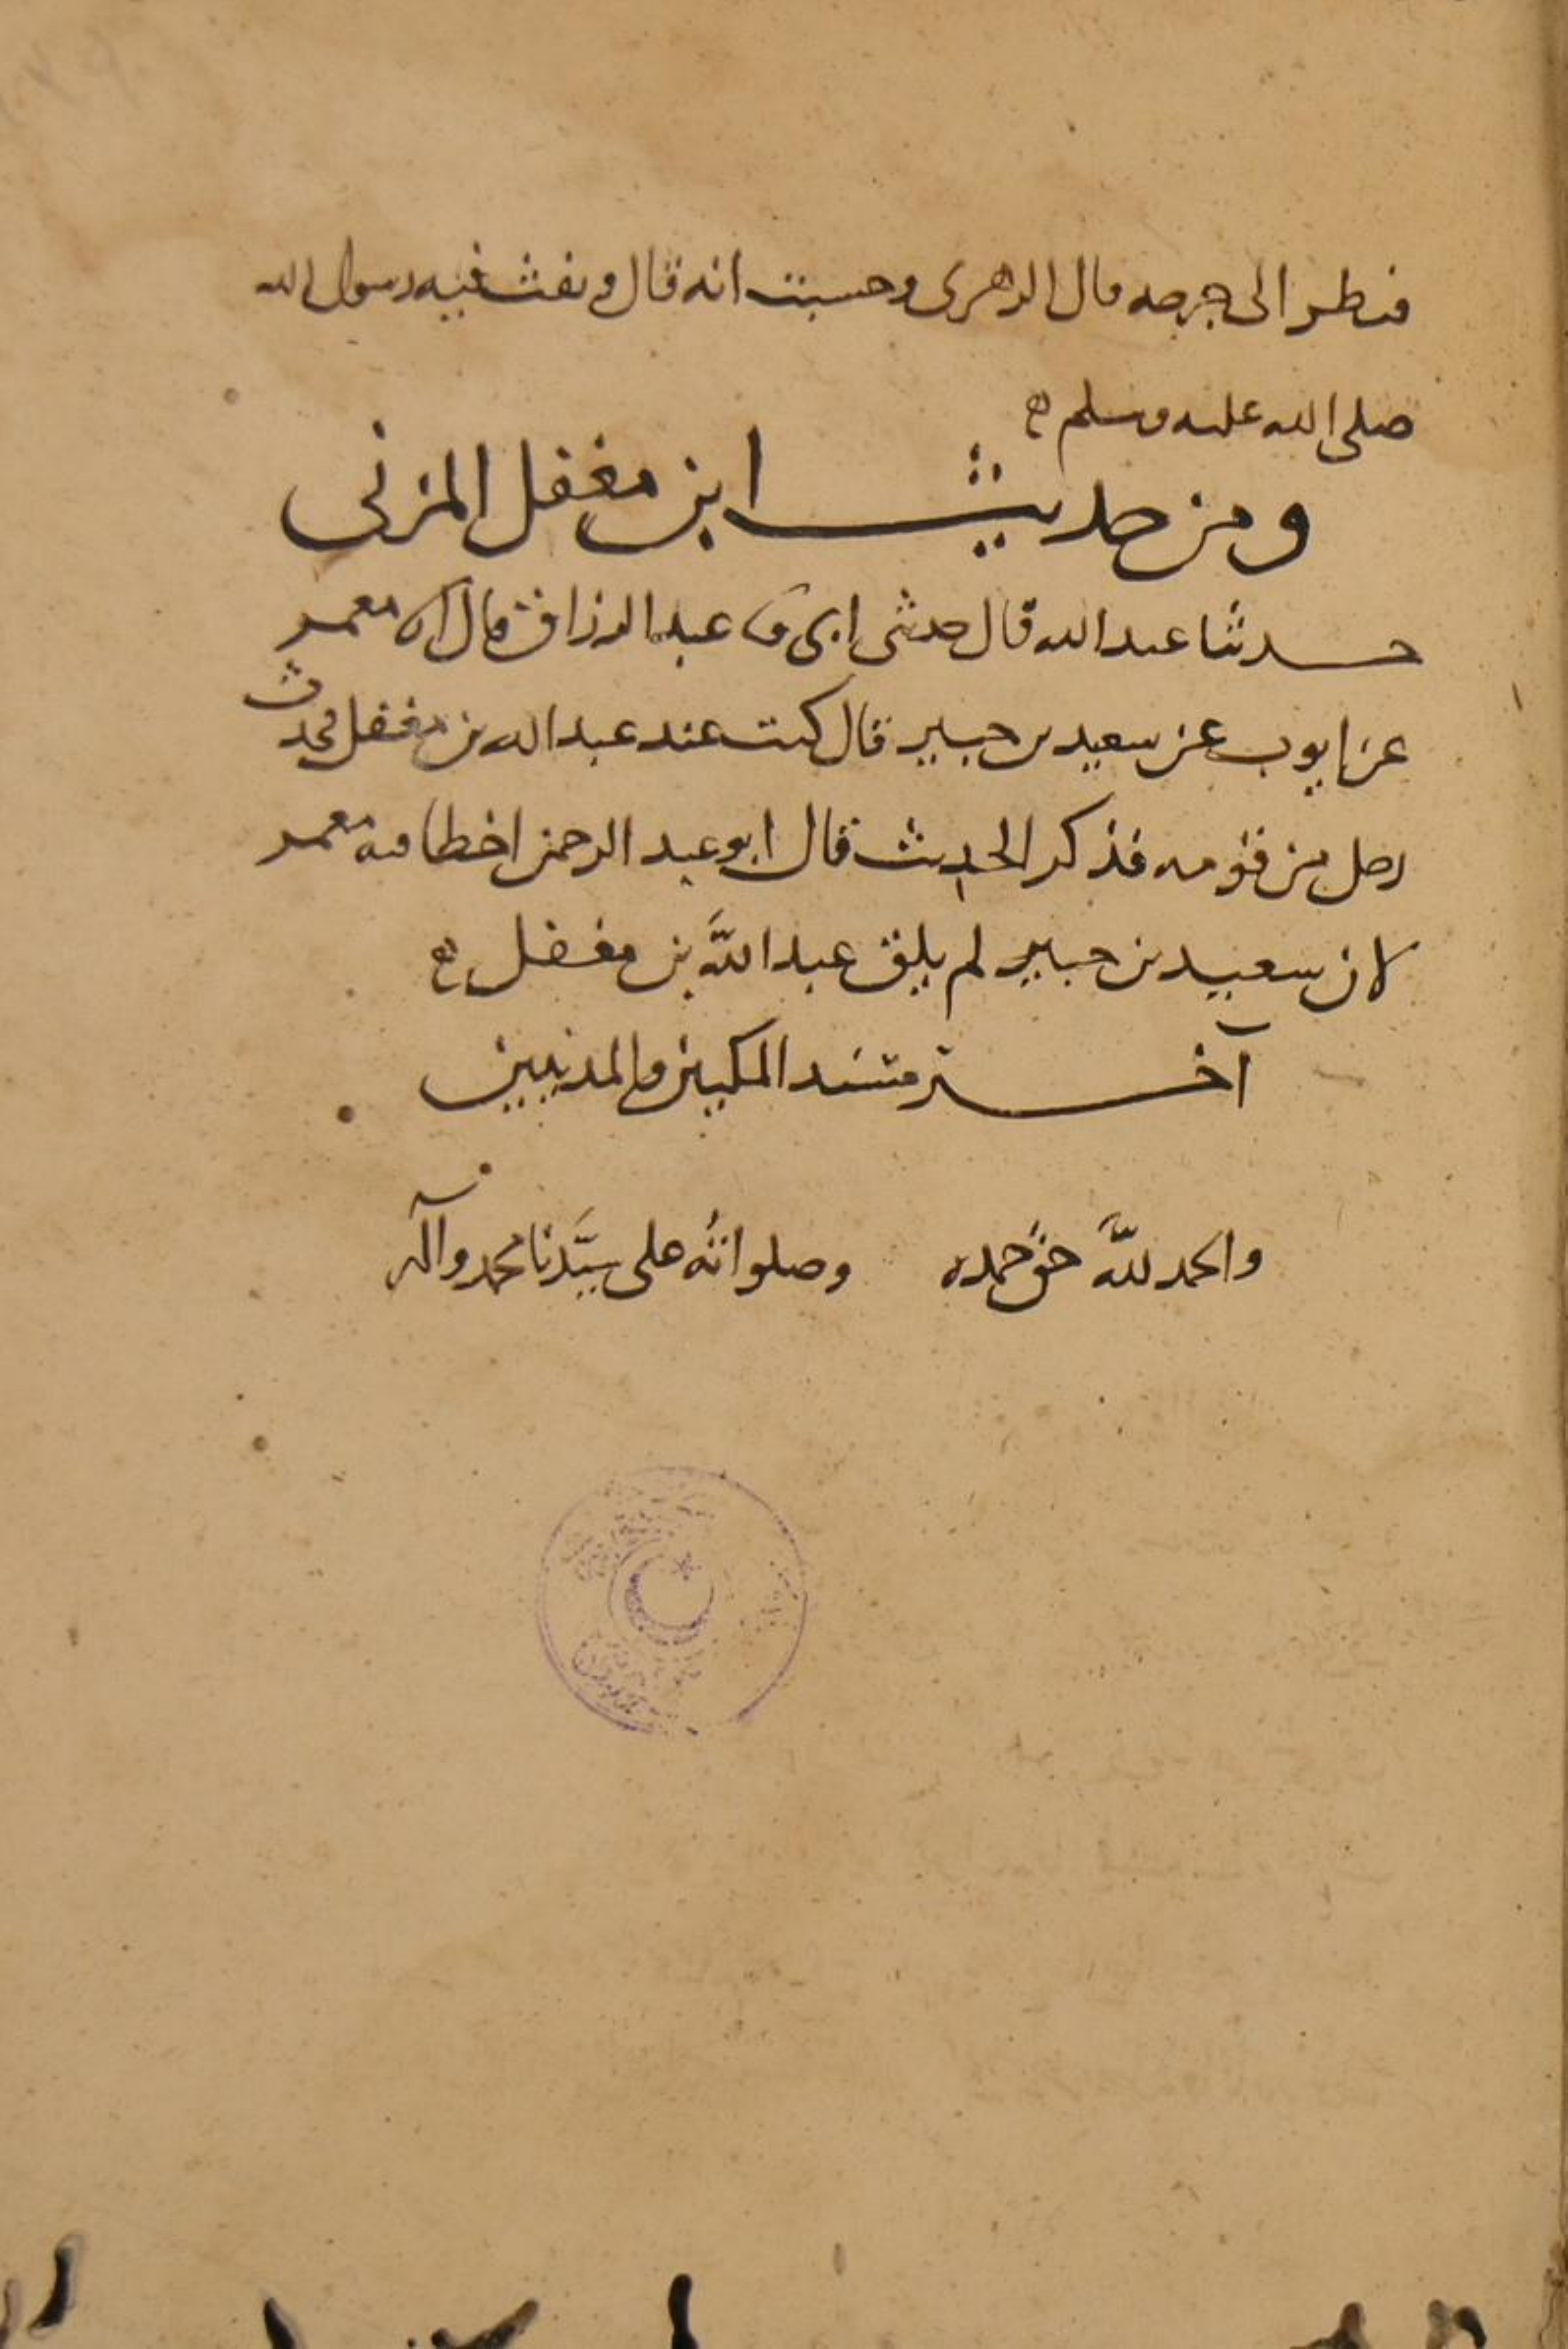 فنظر الى جرحه قال الزهرى وحسبت انه قال ونفث فيه رسول الله
صلى الله عليه وسلم
ومن حديث ابن مغفل المزنى
حدثنا عبد الله قال حدثنى ابى عبد الرزاق قال معمر
عن ايوب عن سعيد بن جبير قال كنت عند عبد الله بن مغفل فحدث
رجل من قومه فذكر الحديث قال ابو عبد الرحمن اخطا فيه معمر
لان سعيد بن جبير لم يلق عبد اللّٰه بن مغفل
آخر مسند المكيين والمدنيين
والحمد للّٰه حق حمده وصلواته على سيّدنا محمد وآله